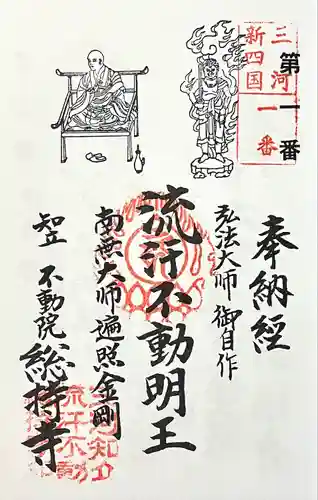 三河
新四国
一番
第一番
奉納経
弘法大師 御自作
流汗不動明王
南無大師遍照金剛
知立 不動院
総持寺
三河知立
流汗不動
総持寺